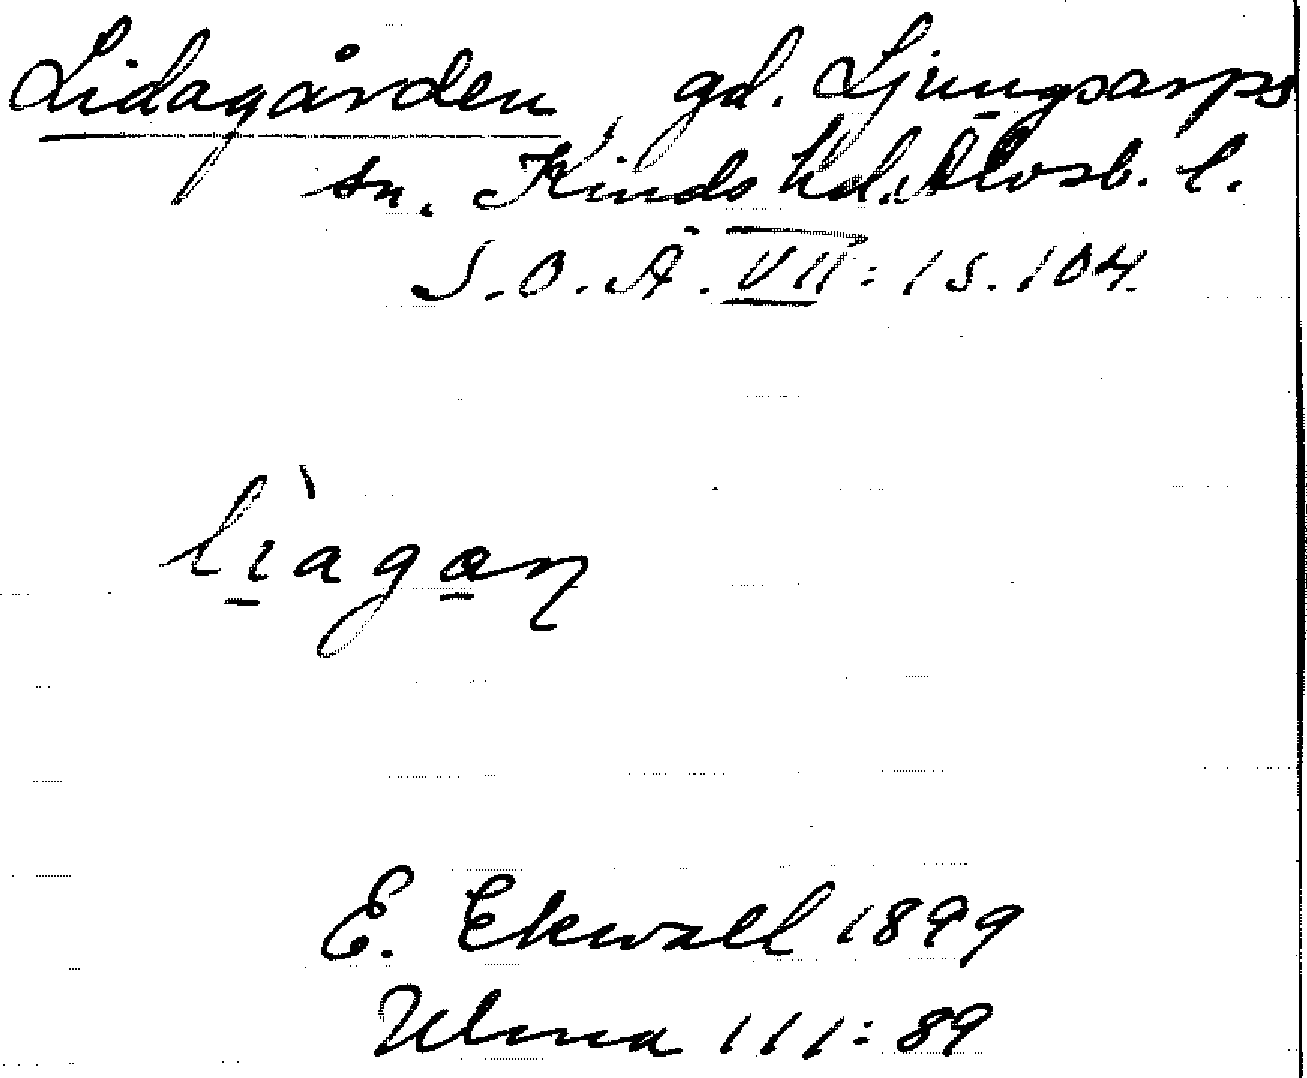 Lidagården, gd. Ljungsarps
sn. Kinds hd. Älvsb. l.
S.O.Ä. VII:1 S. 104.
lìagan
E. Ekwall 1899
Ulma 111:89